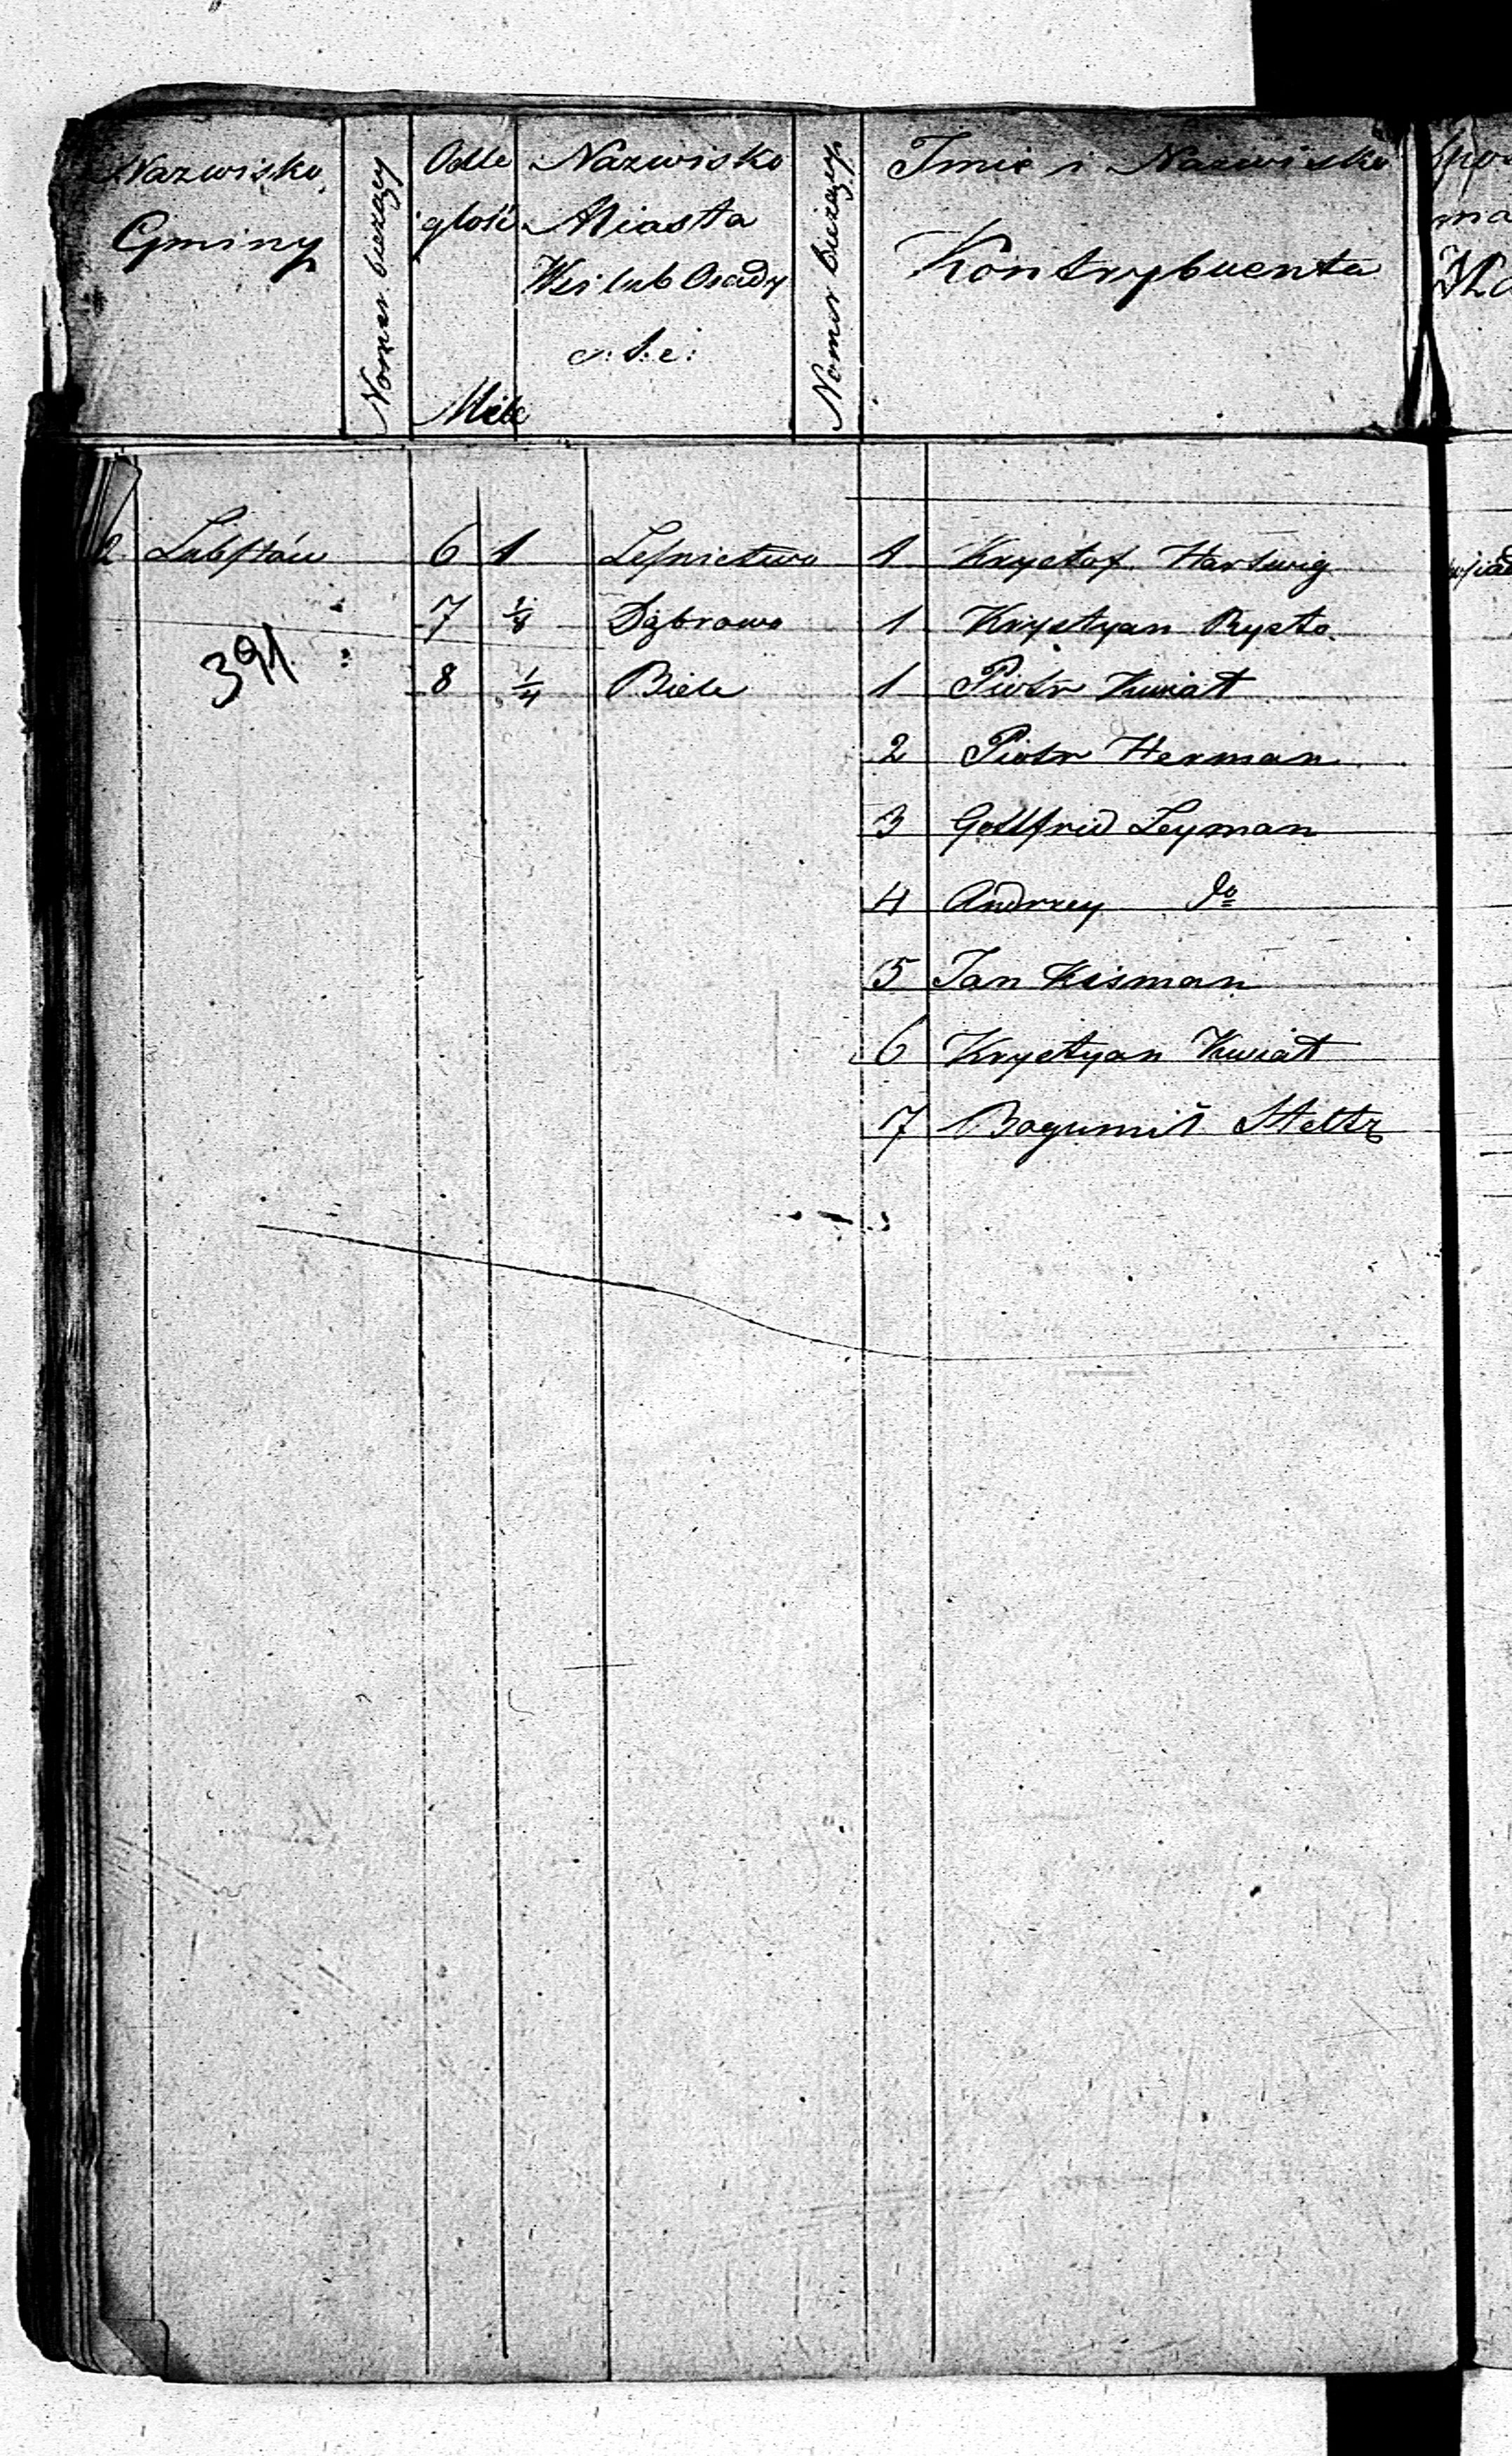 Nazwisko
Gminy
Nomer bieżący
Odle
głość
Mile
Nazwisko
Miasta
Wsi lub Osady
i. t. c:
Nomer bieżący
Imie i Nazwisko
Kontrybuenta
2. Lubstów 6 1 Leśnictwo 1 Krysztof Hartwig
7 1/8 Dąbrowa 1 Krystyan
391
8 1/4 Biele 1 Piotr Kwiat
2 Piotr Herman
3 Gottfrid Leyman
4 Andrzey do
5 Jan Kisman
6 Krystyan Kwiat
7 Bogumił Steltz